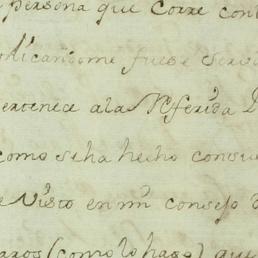 persona que corre con
plicandome fuese serv
ertenece a la Referida
como se ha hecho con
visto en mi consejo
(como lo hago) que